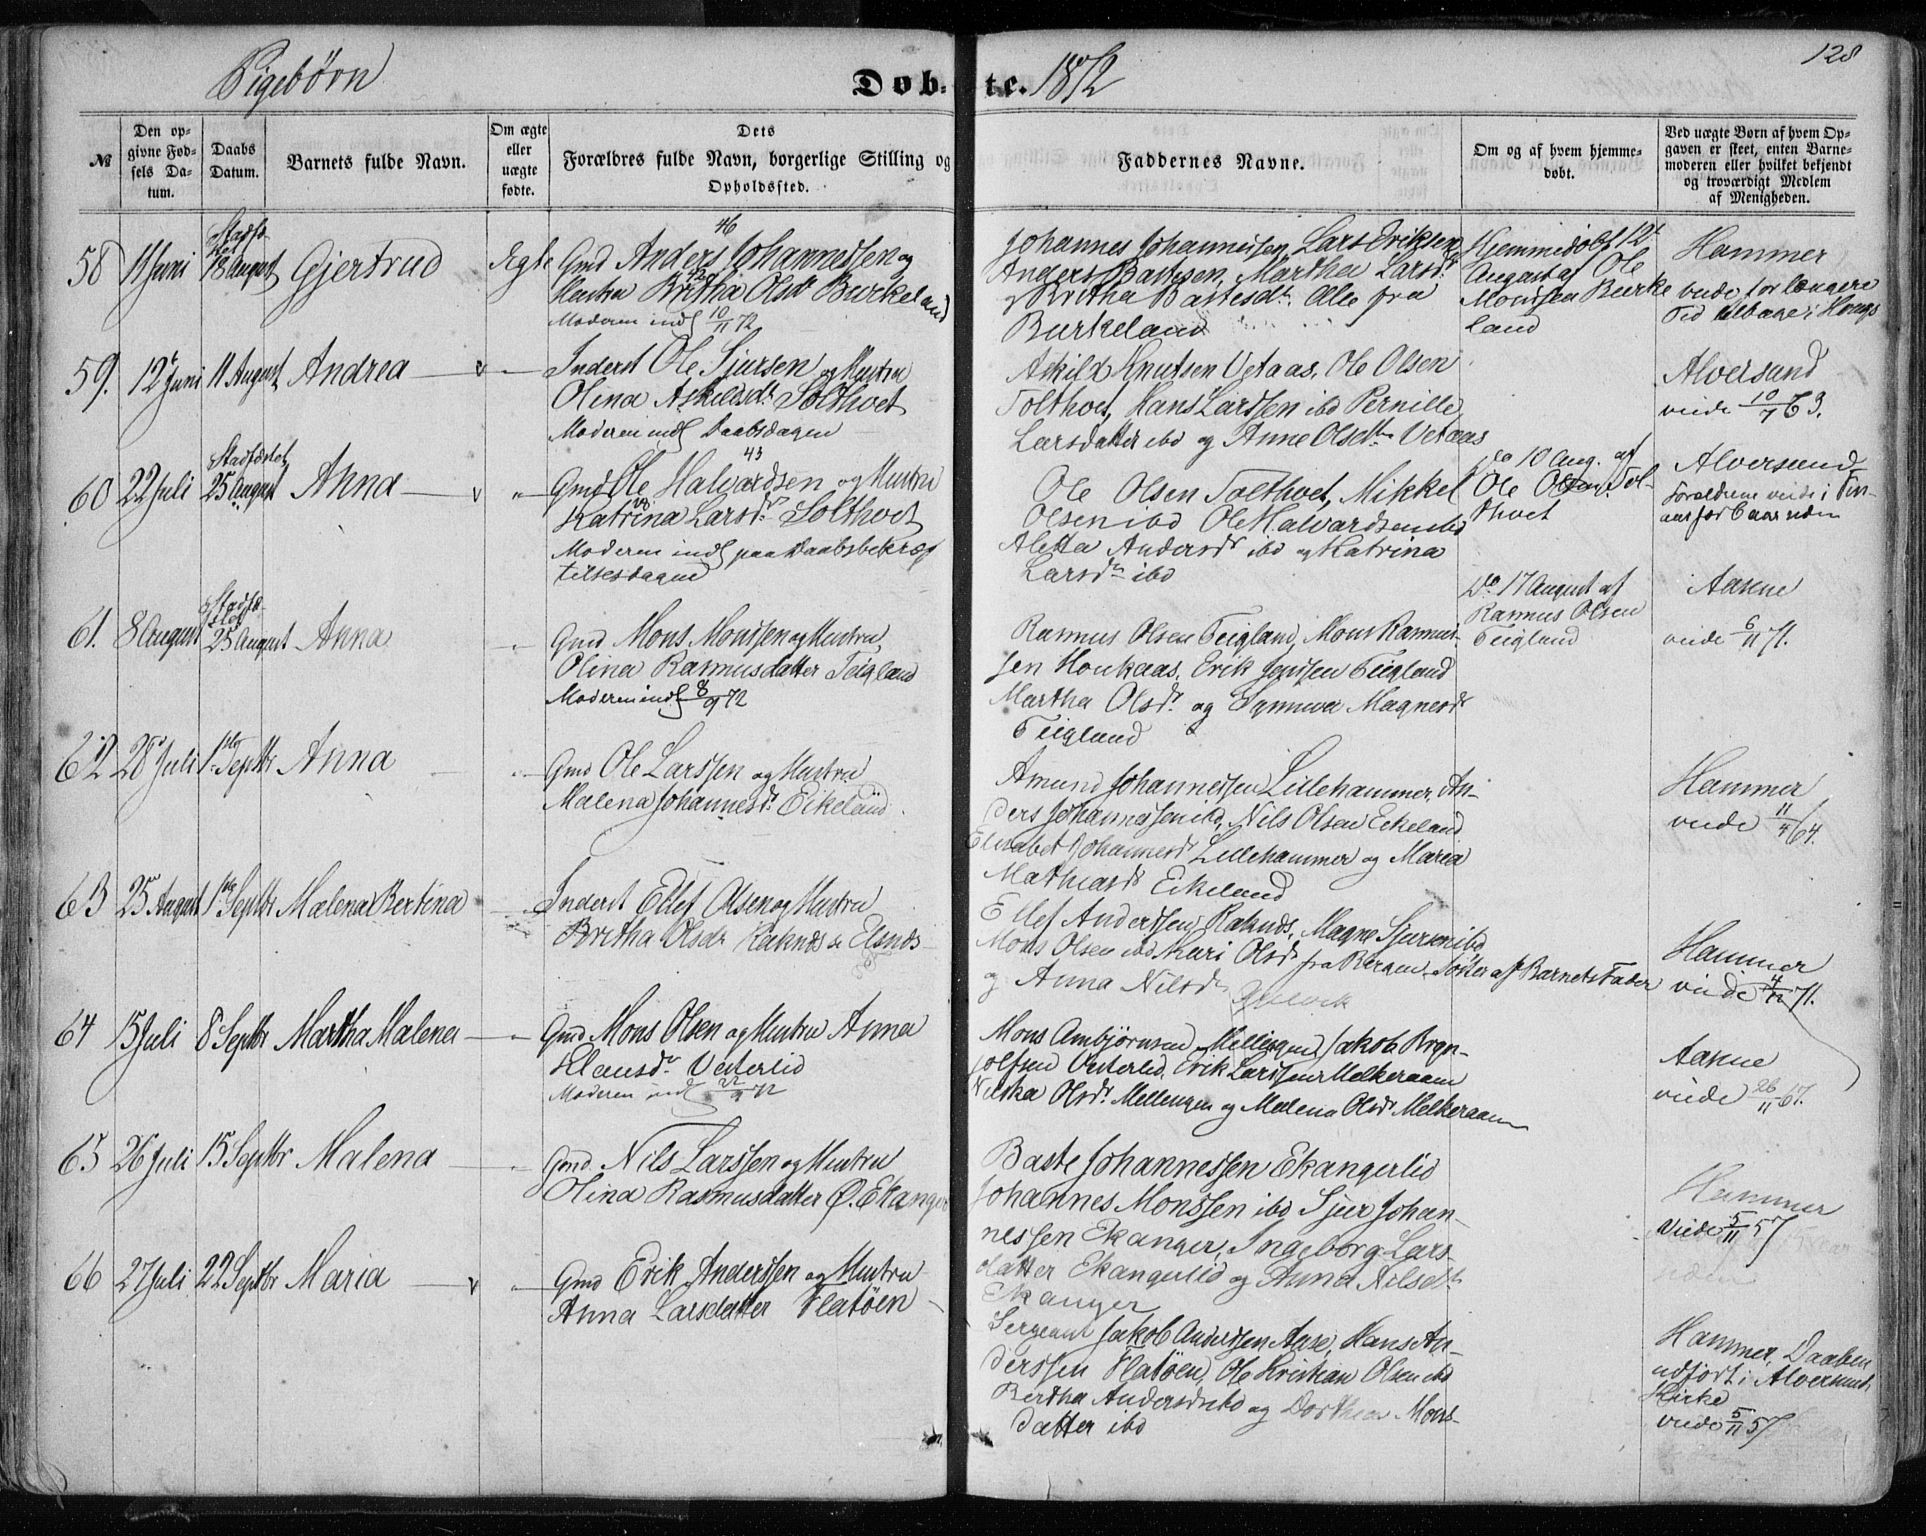 Pigebørn
Døb-
te. 1872
128
№
Den op-
givne Fød-
sels Da-
tum.
Daabs
Datum.
Barnets fulde Navn.
Om ægte
eller
uægte
fødte.
Dets
Forældres fulde Navn, borgerlige Stilling og
Opholdssted.
Faddernes Navne.
Om og af hvem hjemme-
døbt.
Ved uægte Børn af hvem Op-
gaven er skeet, enten Barne-
moderen eller hvilket bekjendt
og troværdigt Medlem
af Menigheden.
58 11 Juni Stadfæ-
stet
18 August Gjertrud Ægte
46
Gmd Anders Johannessen og
Hustru Britha Olsdr Burkeland
Moderen indl 10/11 72
Johannes Johannessen, Lars Eriksen
Anders Bastesen, Martha Larsdr
og Britha Bastesdr. Alle fra
Burkeland
Hjemmedøbt 12t
August af Ole
Monssen Burke
land
Hammer
viede for længere
Tid tilbage i Haugs
59. 12 Juni 11 August Andrea — v —
Inderst Ole Sjursen og Hustru
Olina Askildsdr Solthvet
Moderen indl Daabsdagen
Askild Knutsen Vetaas, Ole Olsen
Solthvet, Hans Larssen ibd Pernille
Larsdatter ibd og Anne Olsdtr Vetaas
Alversund
viede 10/7 63.
60 22 Juli Stadfæstet
25 August Anna — v "
43
Gmd Ole Halvardsen og Hustru
Katrina Larsdr Solthvet
Moderen indl paa Daabsbekræf
telsesdagen
Ole Olsen Solthvet, Mikkel
Olsen ibd Ole Halvardsen ibd
Aletta Andersdr ibd og Katrina
Larsdr ibd
do 10 Aug. af
Ole Olsen Sol-
thvet
Alversund
Forældrene viede i Fin-
aas for 6 aar siden
61. 8 August Stadfæ-
stet
25 August Anna "
Gmd Mons Monssen og Hustru
Olina Rasmusdatter Teigland
Moderen indl 8/9 72
Rasmus Olsen Teigland, Mons Rasmus-
sen Houkaas, Erik Jonssen Teigland
Martha Olsdr. og Synneva Magnesdr
Teigland
do 17 August af
Rasmus Olsen
Teigland
Aasene
viede 6/11 71.
62 28 Juli 1ste Septbr Anna — "
Gmd Ole Larssen og Hustru
Malena Johannesdr Eikeland.
Amund Johannessen Lillehammer, An-
ders Johannessen ibd, Nils Olsen Eikeland
Elisabet Johannesdr Lillehammer og Maria
Mathiasdr Eikeland
Hammer
viede 11/4 64.
63 25 August 1ste Septbr Malena Bertina
Inderst Ellef Olsen og Hustru
Britha Olsdr Raknes
Ellef Anderssen Raknes, Magne Sjursen ibd
Mons Olsen ibd Kari Olsdr fra Bergen Søster af Barnets Fader
og Anna Nilsdr
Hammer
viede 4/12 71.
64 15 Juli 8 Septbr Martha Malena — "
Gmd Mons Olsen og Hustru Anna
Hansdr Vesterlid
Moderen indl 22/9 72
Mons Ambjørnsen Mellingen, Jakob Bryn-
jolfsen Vesterlid, Erik Larssen Melkeraaen
Nilska Olsdr. Mellingen og Malena Olsdr Melkeraaen
Aasene
viede 26/11 67.
65 26 Juli 15 Septbr Malena — "
Gmd. Nils Larssen og Hustru
Olina Rasmusdatter Ø. Ekanger
Baste Johannessen Ekangerlid
Johannes Monssen ibd Sjur Johan-
nessen Ekanger, Ingeborg Lars-
datter Ekangerlid og Anna Nilsdtr
Ekanger
Hammer
viede 5/11 57
66 27 Juli 22 Septbr Maria — v "
Gmd Erik Anderssen og Hustru
Anna Larsdatter Flatøen
Sergeant Jakob Anderssen Aase, Hans An-
derssen Flatøen, Ole Kristian Olsen ibd
Bertha Andersdr ibd og Dorthea Mons-
datter ibd
Hammer, Daaben
udført i Alversunds
Kirke
viede 5/11 57